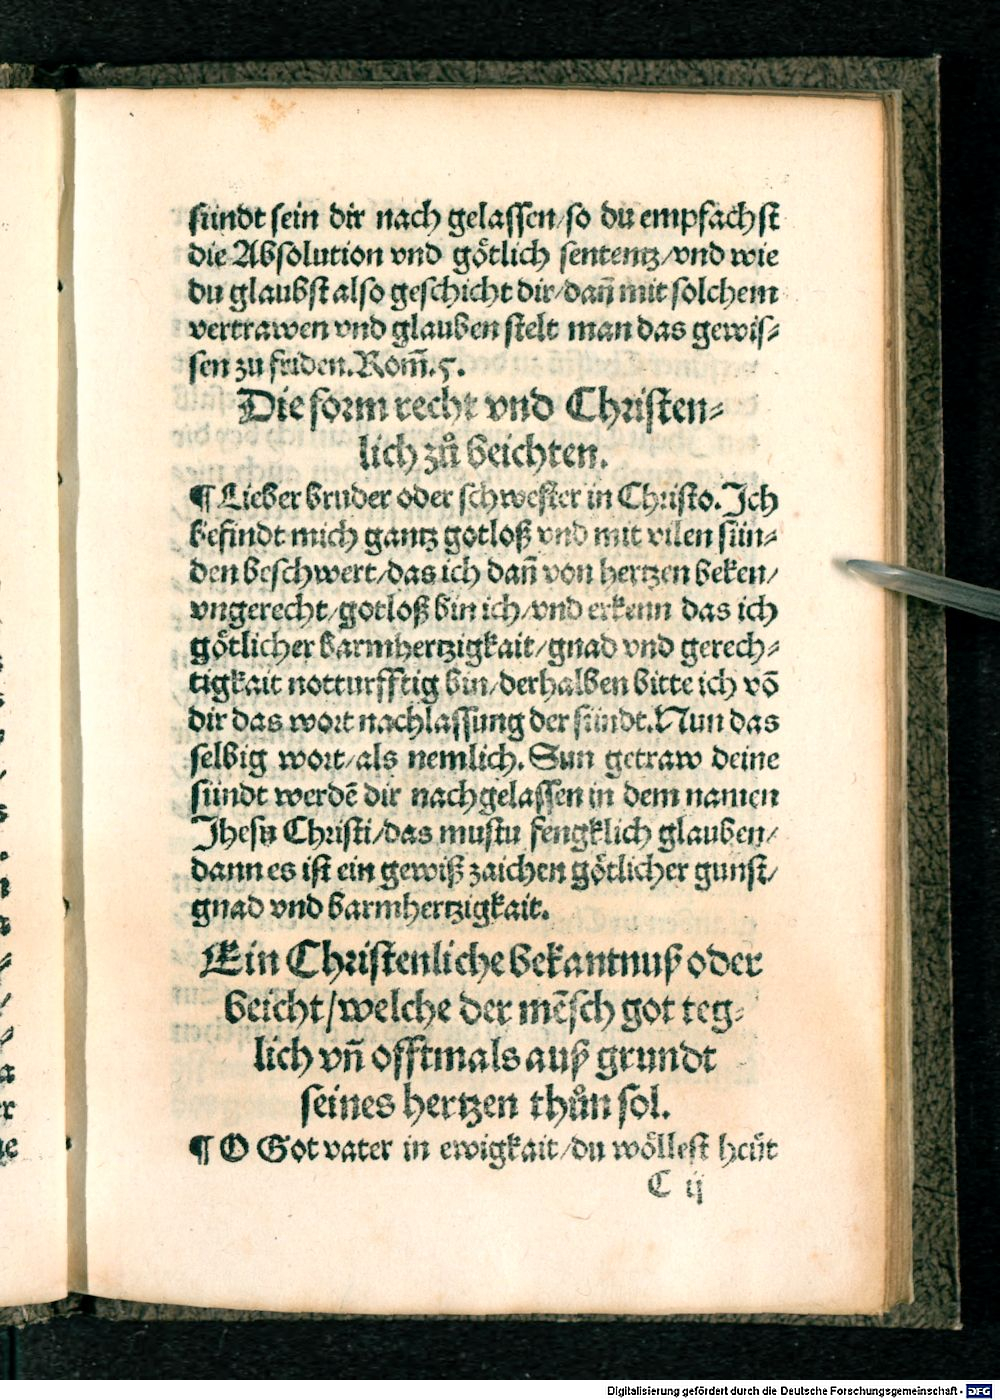 sündt sein dir nach gelassen/so du empfachst
die Absolution vnd götlich sententz/vnd wie
du glaubst also geschicht dir/dañ mit solchem
vertrawen vnd glauben stelt man das gewis⸗
sen zu friden. Rom̃.5.
Die form recht vnd Christen⸗
lich zů beichten.
¶ Lieber bruder oder schwester in Christo. Ich
befindt mich gantz gotloß vnd mit vilen sün⸗
den beschwert/das ich dañ von hertzen beken/
vngerecht/gotloß bin ich/vnd erkenn das ich
götlicher barmhertzigkait/gnad vnd gerech⸗
tigkait notturfftig bin/derhalben bitte ich võ
dir das wort nachlassung der sündt. Nun das
selbig wort/als nemlich. Sun getraw deine
sündt werdẽ dir nachgelassen in dem namen
Jhesu Christi/das mustu fengklich glauben/
dann es ist ein gewiß zaichen götlicher gunst/
gnad vnd barmhertzigkait.
Ein Christenliche bekantnuß oder
beicht/welche der mẽsch got teg⸗
lich vñ offtmals auß grundt
seines hertzen thůn sol.
¶ O Got vater in ewigkait/du wöllest heüt
C ij
Digitalisierung gefördert durch die Deutsche Forschungsgemeinschaft - DFG